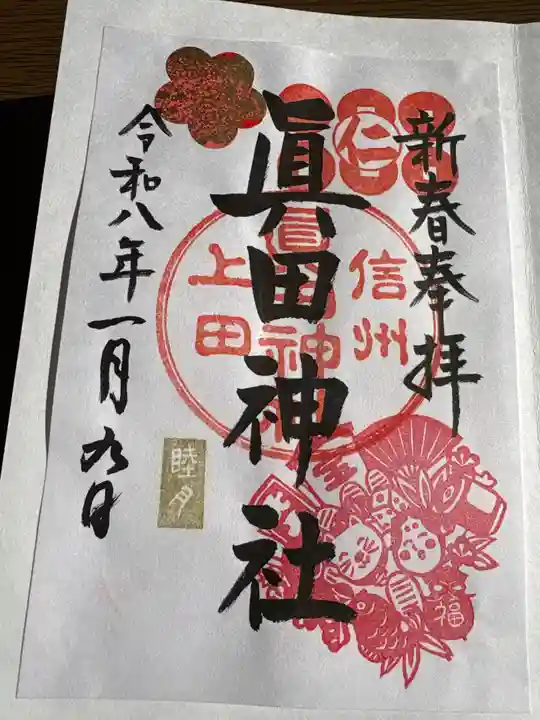 新春奉拝
仁
信州
眞田神社
上田
福
令和八年一月九日
睦月